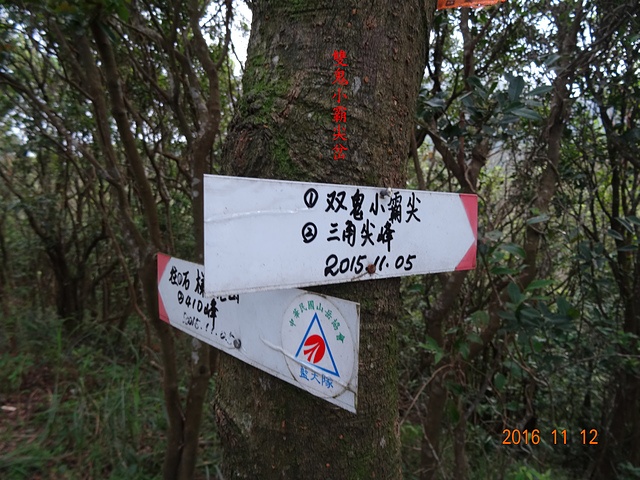 雙鬼小霸尖岔
①双鬼小霸尖
②三角尖峰
2015.11.05
②410峰
中華民國山岳協會
藍天隊
2016 11 12